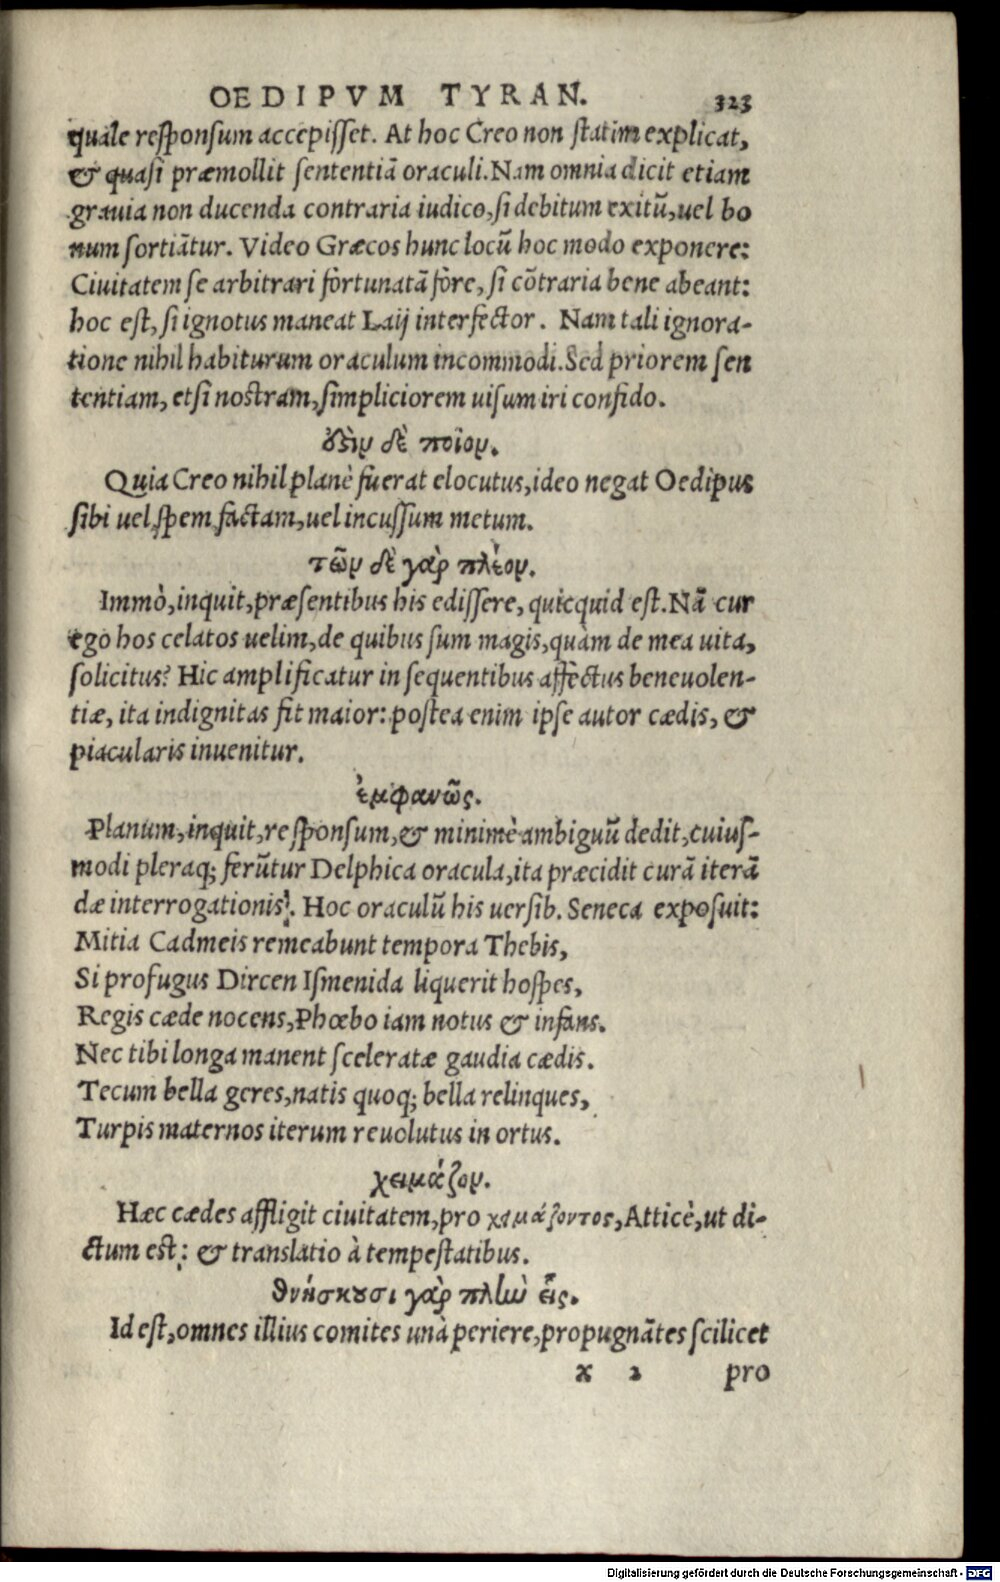 OEDIPVM TYRAN. 323
quale responsum accepisset. At hoc Creo non statim explicat,
& quasi præmollit sententiā oraculi. Nam omnia dicit etiam
grauia non ducenda contraria iudico, si debitum exitū, uel bo
num sortiātur. Video Græcos hunc locū hoc modo exponere:
Ciuitatem se arbitrari fortunatā fore, si cōtraria bene abeant:
hoc est, si ignotus maneat Laij interfector. Nam tali ignora-
tione nihil habiturum oraculum incommodi. Sed priorem sen
tentiam, etsi nostram, simpliciorem uisum iri confido.
ἔστιν δὲ ποῖον.
Quia Creo nihil planè fuerat elocutus, ideo negat Oedipus
sibi uel spem factam, uel incussum metum.
τῶν δὲ γὰρ πλέον.
Immò, inquit, præsentibus his edissere, quicquid est. Nā cur
ego hos celatos uelim, de quibus sum magis, quàm de mea uita,
solicitus? Hic amplificatur in sequentibus affectus beneuolen-
tiæ, ita indignitas fit maior: postea enim ipse autor cædis, &
piacularis inuenitur.
ἐμφανῶς.
Planum, inquit, responsum, & minimè ambiguū dedit, cuius-
modi pleraq; ferūtur Delphica oracula, ita præcidit curā iterā
dæ interrogationis. Hoc oraculū his uersib. Seneca exposuit:
Mitia Cadmeis remeabunt tempora Thebis,
Si profugus Dircen Ismenida liquerit hospes,
Regis cæde nocens, Phœbo iam notus & infans.
Nec tibi longa manent sceleratæ gaudia cædis.
Tecum bella geres, natis quoq; bella relinques,
Turpis maternos iterum reuolutus in ortus.
χειμάζον.
Hæc cædes affligit ciuitatem, pro χειμάζοντος, Atticè, ut di-
ctum est: & translatio à tempestatibus.
θνήσκουσι γὰρ πλὴν εἷς.
Id est, omnes illius comites unà periere, propugnātes scilicet
x 2 pro
Digitalisierung gefördert durch die Deutsche Forschungsgemeinschaft - DFG